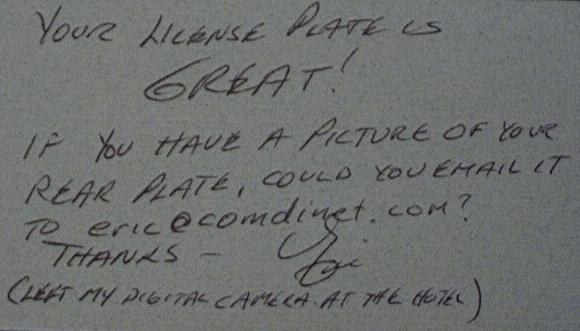 YOUR LICENSE PLATE IS
GREAT!
IF YOU HAVE A PICTURE OF YOUR
REAR PLATE, COULD YOU EMAIL IT
TO eric@comdinet.com?
THANKS -
(LEFT MY DIGITAL CAMERA AT THE HOTEL)